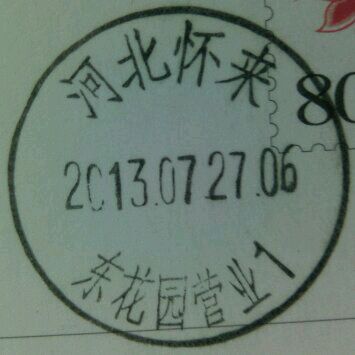 河北怀来
80
2013.07.27.06
东花园营业1